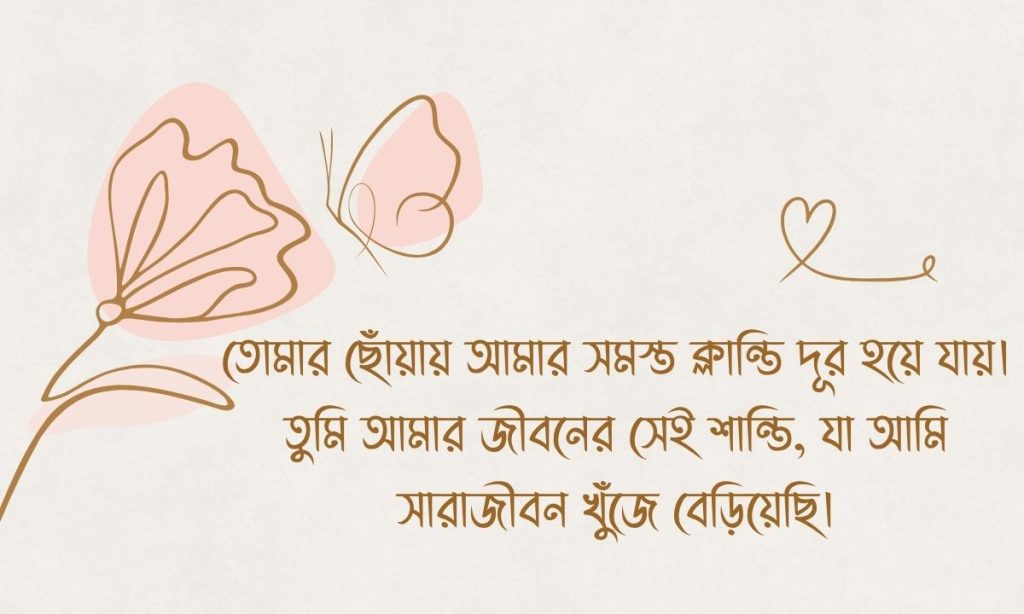 তোমার ছোঁয়ায় আমার সমস্ত ক্লান্তি দূর হয়ে যায়।
তুমি আমার জীবনের সেই শান্তি, যা আমি
সারাজীবন খুঁজে বেড়িয়েছি।